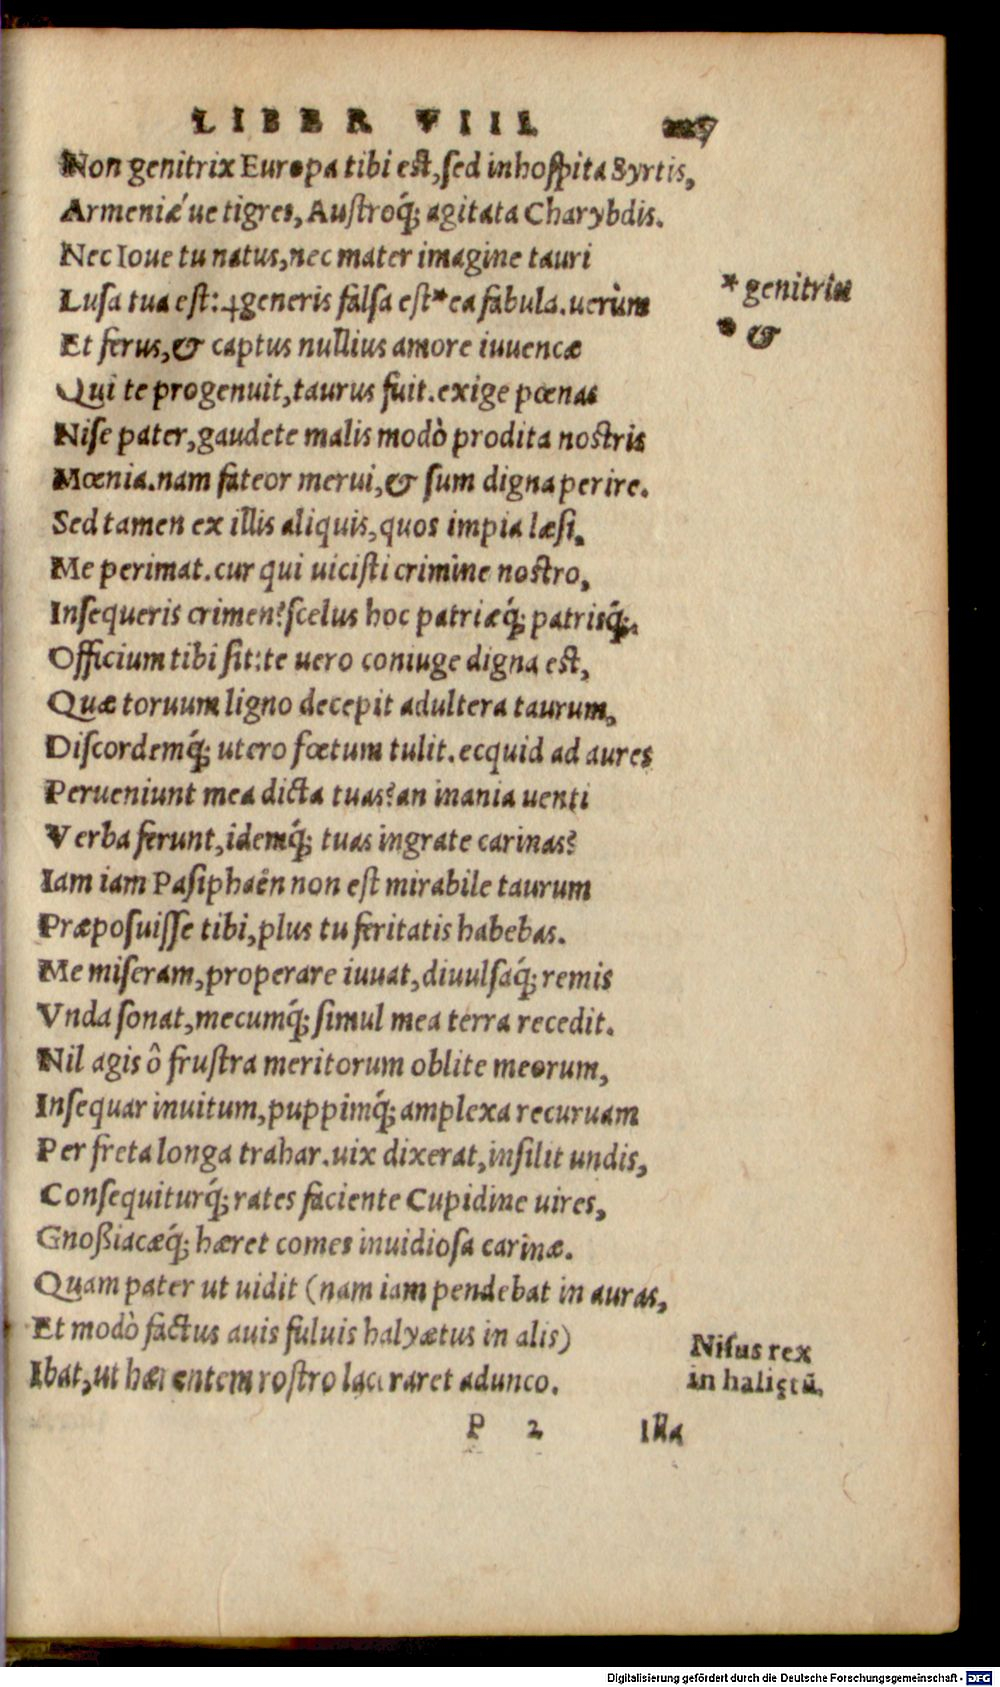 LIBER VIII. 227
Non genitrix Europa tibi est, sed inhospita Syrtis,
Armeniæ´ue tigres, Austroq́; agitata Charybdis.
Nec Ioue tu natus, nec mater imagine tauri
Lusa tua est: generis falsa est*ea fabula. uerùm
Et ferus, & captus nullius amore iuuencæ
Qui te progenuit, taurus fuit. exige pœnas
Nise pater, gaudete malis modò prodita nostris
Mœnia. nam fateor merui, & sum digna perire.
Sed tamen ex illis aliquis, quos impia læsi,
Me perimat. cur qui uicisti crimine nostro,
Insequeris crimen? scelus hoc patriæq́; patrisq́;,
Officium tibi sit: te uero coniuge digna est,
Quæ toruum ligno decepit adultera taurum,
Discordemq́; utero fœtum tulit. ecquid ad aures
Perueniunt mea dicta tuas? an inania uenti
Verba ferunt, idemq́; tuas ingrate carinas?
Iam iam Pasiphaën non est mirabile taurum
Præposuisse tibi, plus tu feritatis habebas.
Me miseram, properare iuuat, diuulsaq́; remis
Vnda sonat, mecumq́; simul mea terra recedit.
Nil agis ô frustra meritorum oblite meorum,
Insequar inuitum, puppimq́; amplexa recuruam
Per freta longa trahar. uix dixerat, insilit undis,
Consequiturq́; rates faciente Cupidine uires,
Gnoßiacæq́; hæret comes inuidiosa carinæ.
Quam pater ut uidit (nam iam pendebat in auras,
Et modò factus auis fuluis halyætus in alis)
Ibat, ut hærentem rostro laceraret adunco.
P 2 Illa
* genitrix
* &
Nisus rex
in haliętū.
Digitalisierung gefördert durch die Deutsche Forschungsgemeinschaft - DFG